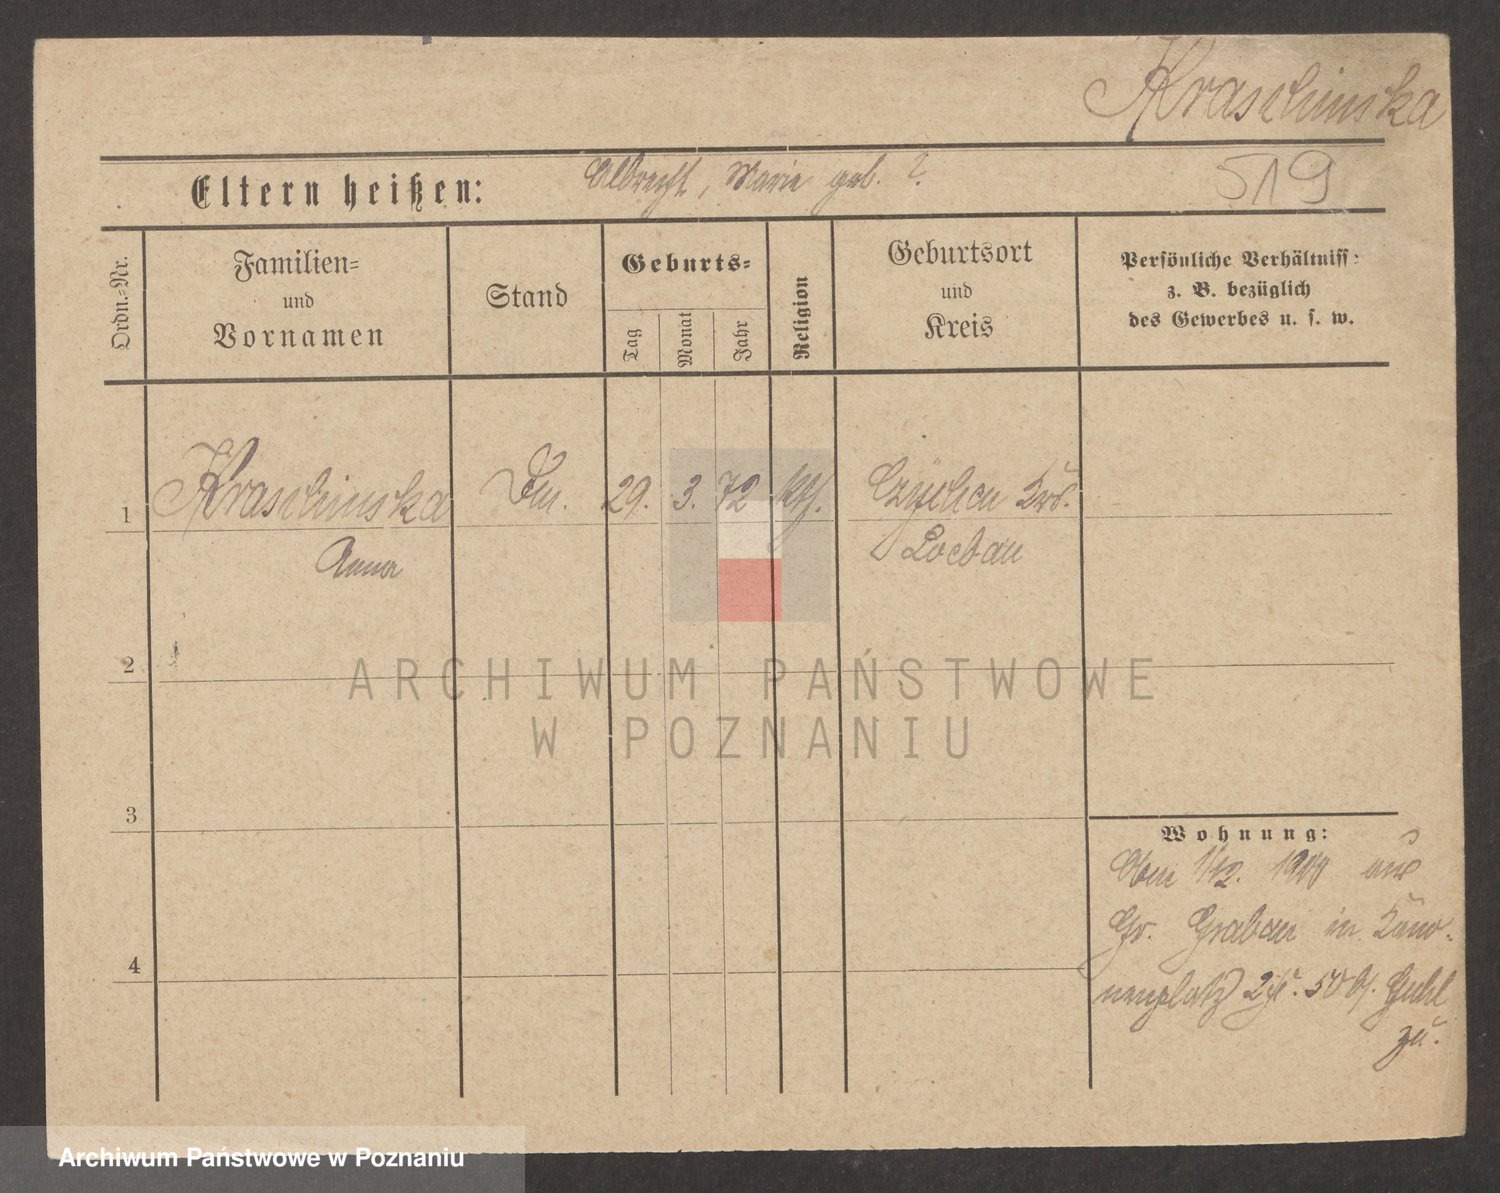 Kraschinska
519
Eltern heißen: Albrecht, Marie geb. ?
Ordn.-Nr.
Familien-
und
Vornamen
Stand
Geburts-
Tag
Monat
Jahr
Religion
Geburtsort
und
Kreis
Persönliche Verhältniss:
z. B. bezüglich
des Gewerbes u. s. w.
1 Kraschinska 29. 3. 72 kth. Krs.
Anna Loebau
2
3
4
Wohnung:
1/12. 1900 aus
Gr. Grabau in Kano-
nenplatz 2 b/.
zu.
ARCHIWUM PAŃSTWOWE
W POZNANIU
Archiwum Państwowe w Poznaniu